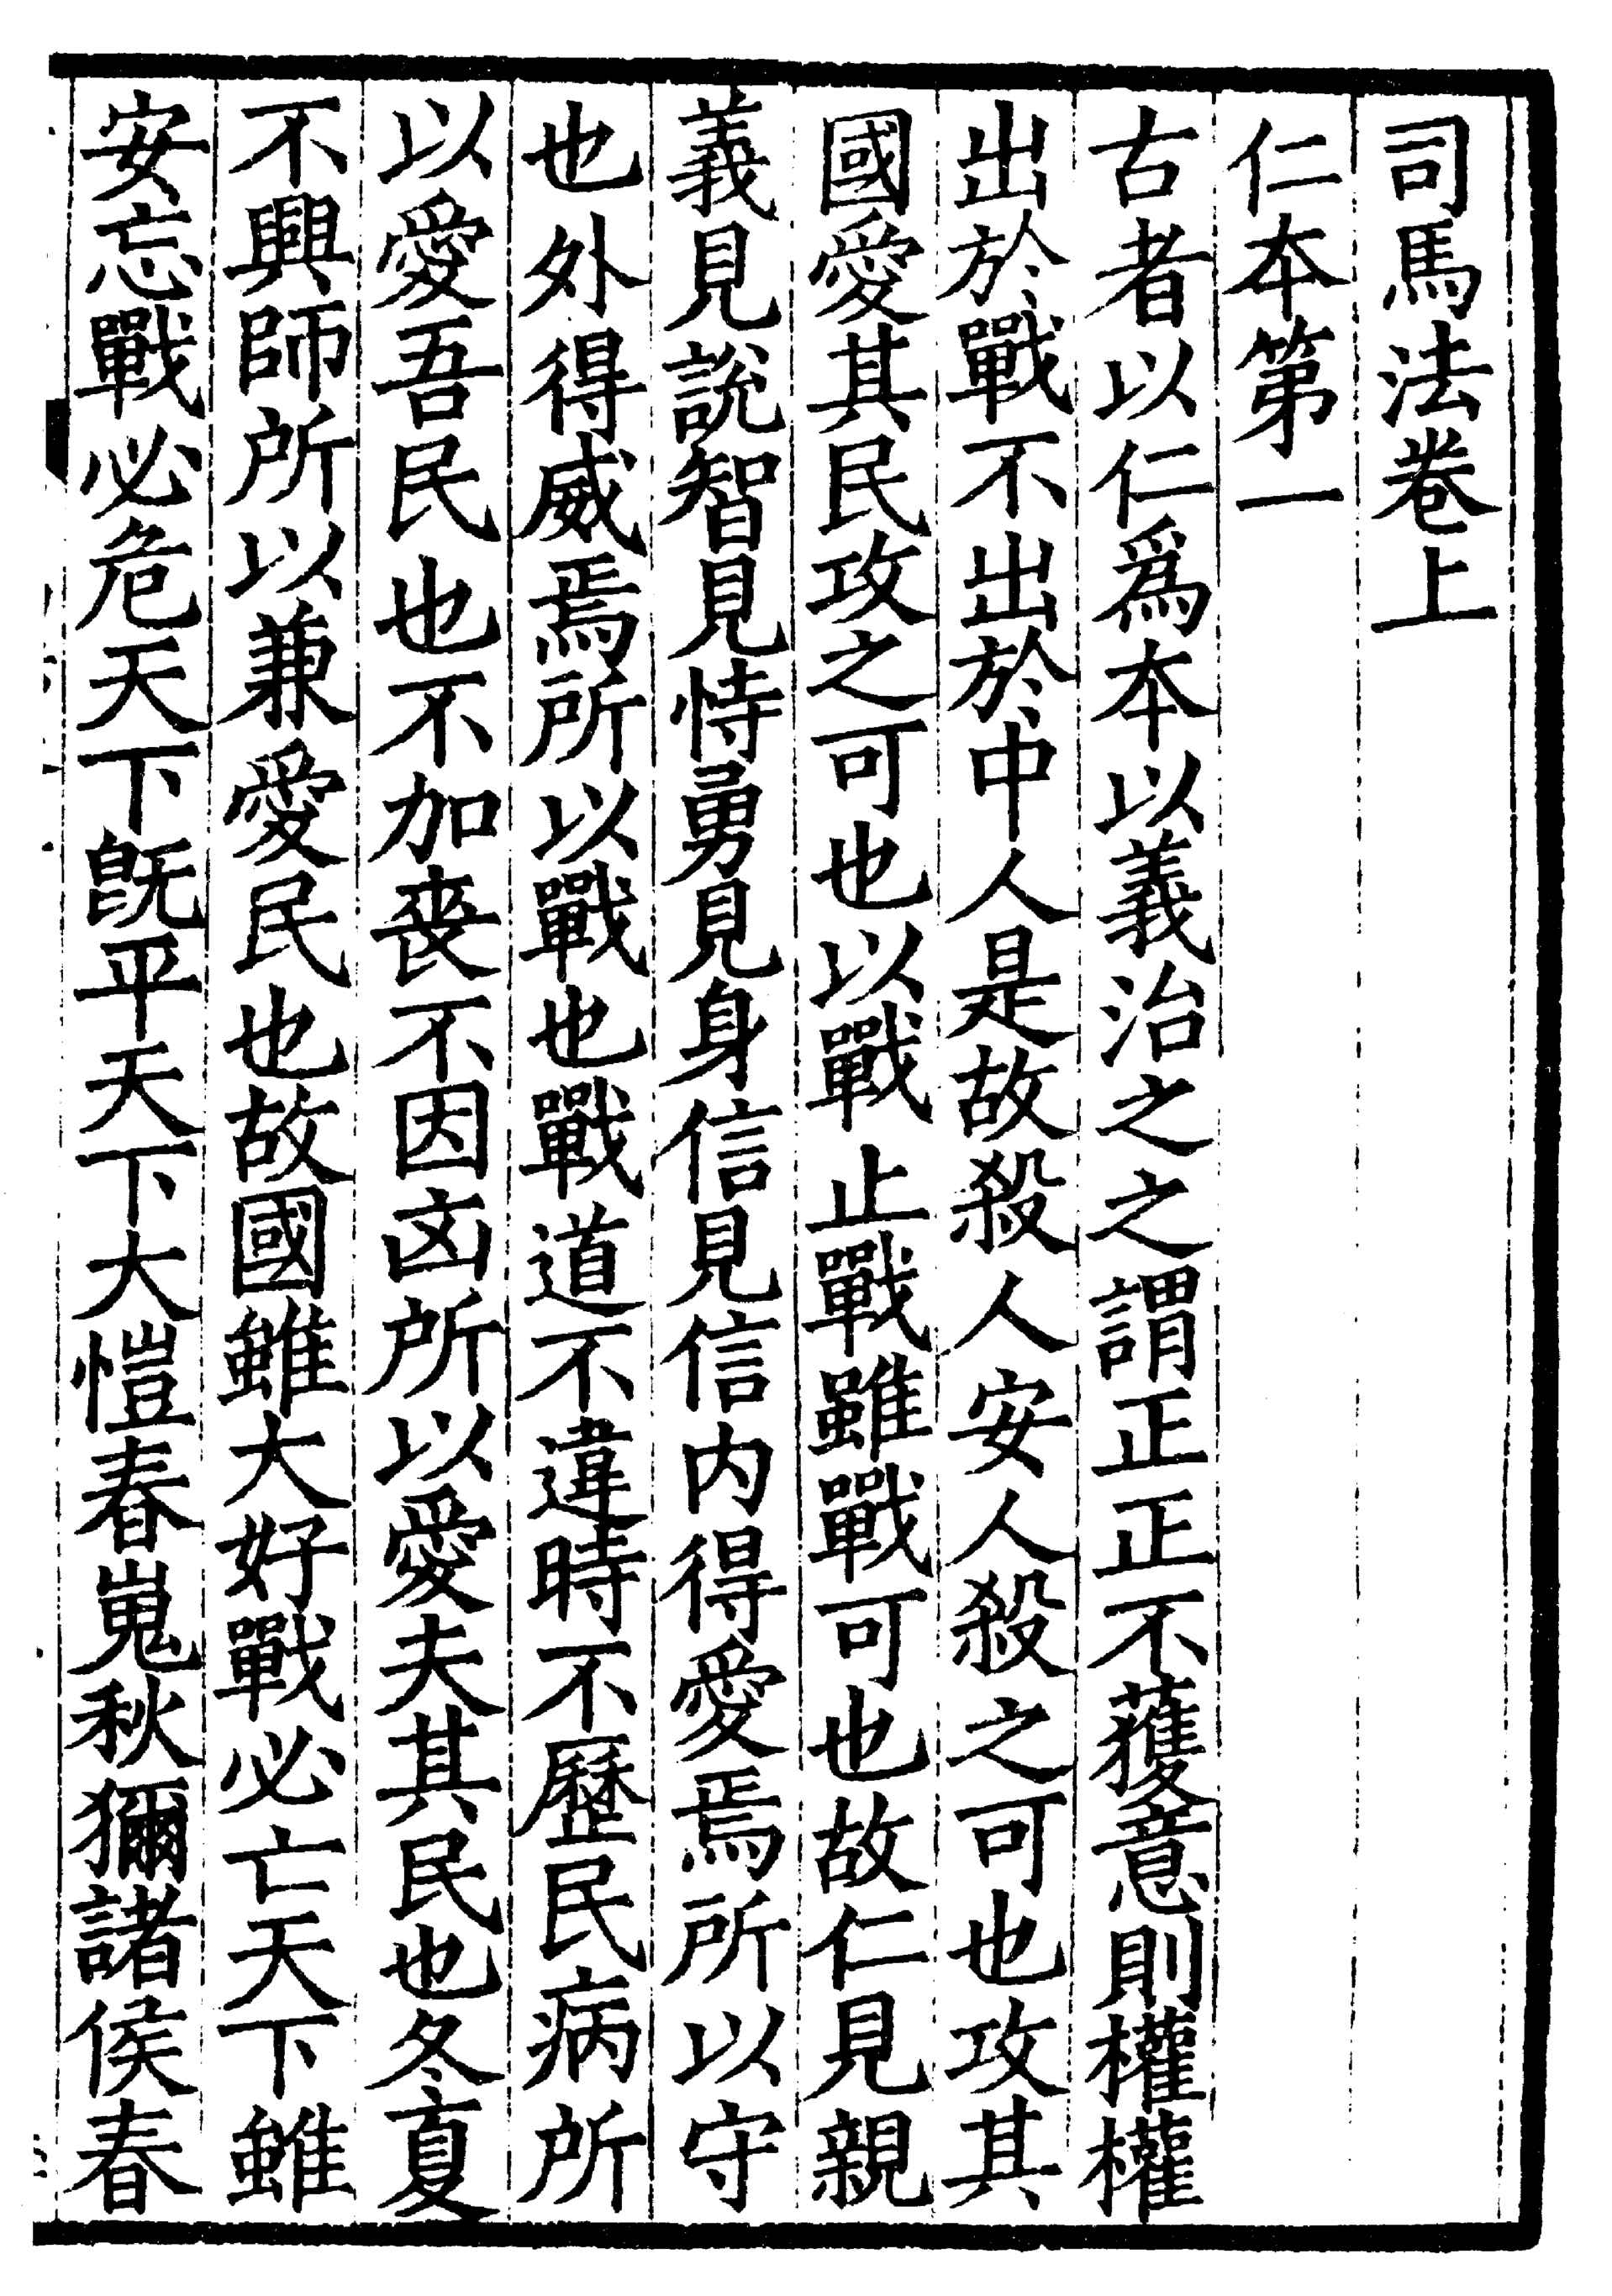 司馬法卷上
仁本第一
古者以仁爲本以義治之之謂正正不獲意則權權
出於戰不出於中人是故殺人安人殺之可也攻其
國愛其民攻之可也以戰止戰雖戰可也故仁見親
義見說智見恃勇見身信見信内得愛焉所以守
也外得威焉所以戰也戰道不違時不歷民病所
以愛吾民也不加喪不因凶所以愛夫其民也冬夏
不興師所以兼愛民也故國雖大好戰必亡天下雖
安忘戰必危天下旣平天下大愷春嵬秋獮諸侯春